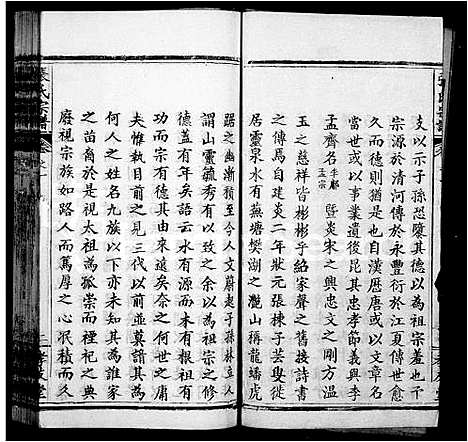 支以示子孫恐隳其德以為祖宗羞也不
宗源於清河傳於永豐衍於江夏傳世愈
久而德則猶自也自漢歷唐或以文章名
當世或以事業遺後昆其忠孝節義與李
孟齊名李膺孟宗暨炎宋之興忠文之剛方濆
玉之慈祥皆彬彬乎絡家聲之舊接詩書
之傳焉自建炎二年狀元張棟子芸叟徙
居靈泉水有燕塘樊湖之瀧山稱龍蟠虎
踞之幽漸積至今人文蔚起子孫林立人
謂山靈毓秀有以致之余以為祖宗之修
德蓋有年矣語云水有源而木有根祖有
功而宗有德其由來遠矣奈之何世之人
夫惟執目前之見三代以前莫諳其為
何人之姓何名九族以下亦未知其為誰家
之苗裔於是視太祖為孤崇而裡祀之典
廢視宗族如路人而篤厚之心泯積而久
張氏宗譜
卷之一